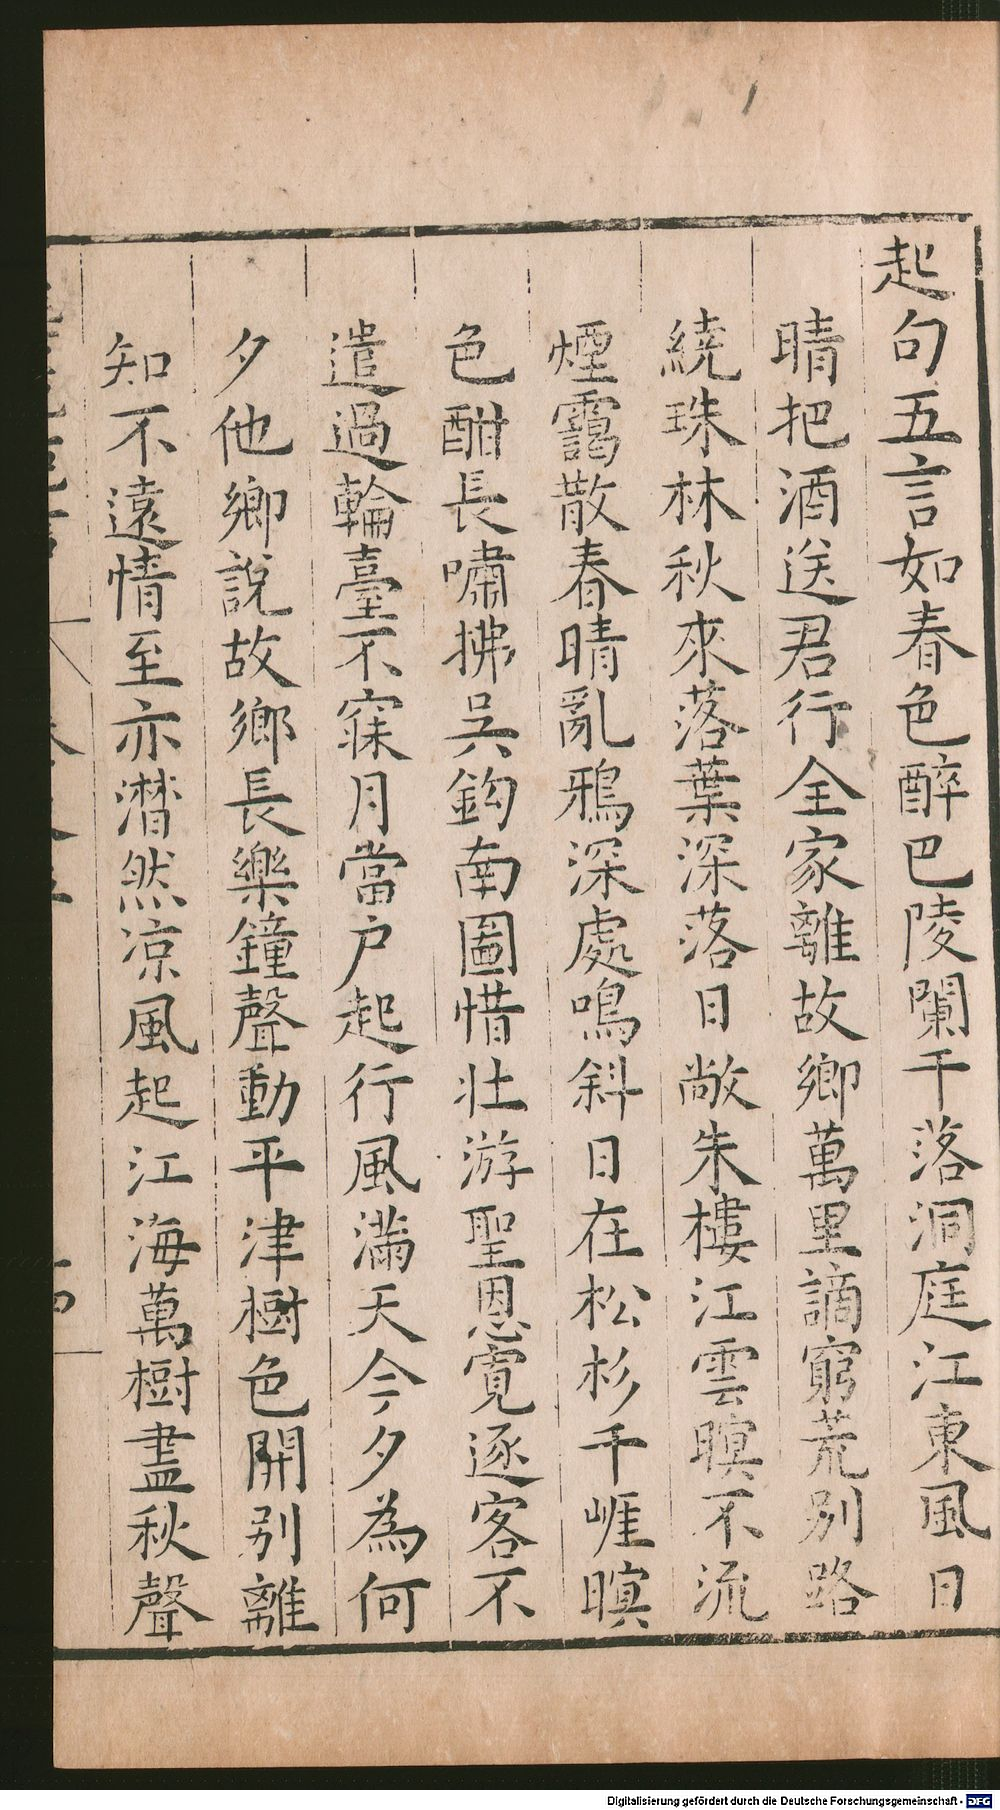 起句五言如春色醉巴陵闌干落洞庭江東風日
晴把酒送君行全家離故鄉萬里謫窮荒別路
繞珠林秋來落葉深落日敞朱樓江雲暝不流
煙靄散春晴亂鴉深處鳴斜日在松杉千崕暝
色酣長嘯拂吳鈎南圖惜壯游聖恩寬逐客不
遣過輪臺不寐月當戶起行風滿天今夕為何
夕他鄉說故鄉長樂鐘聲動平津樹色開別離
知不遠情至亦潸然凉風起江海萬樹盡秋聲
Digitalisierung gefördert durch die Deutsche Forschungsgemeinschaft - DFG